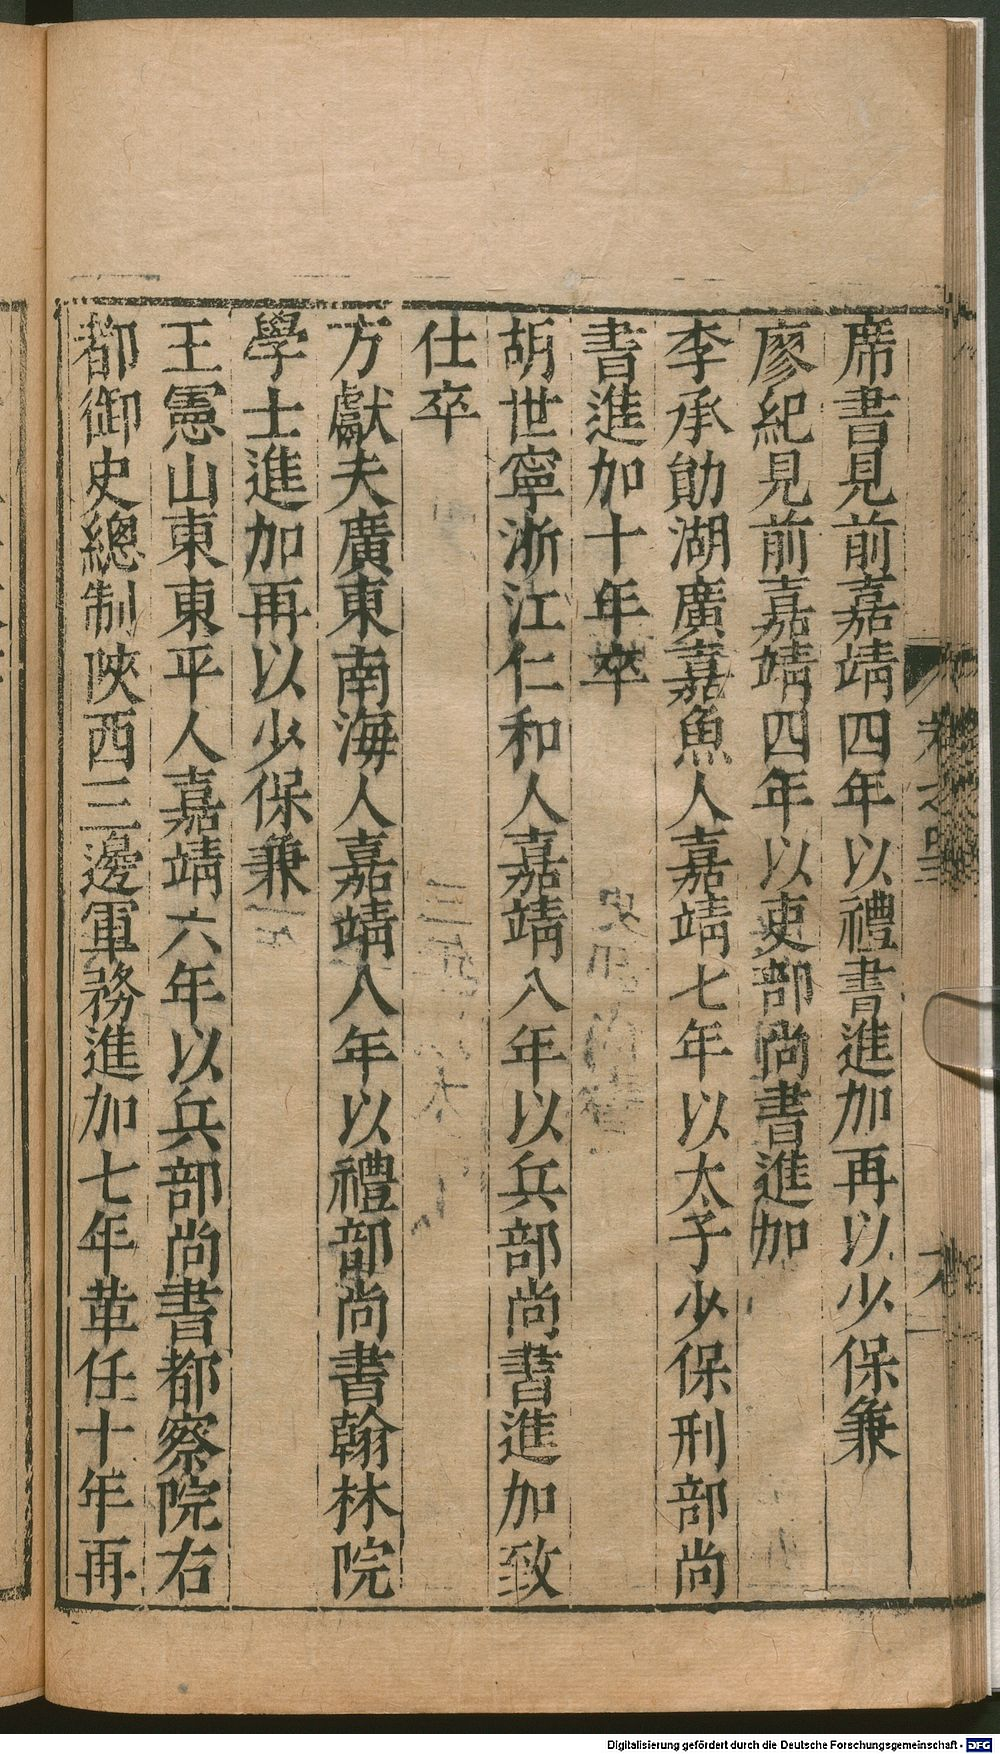 席書見前嘉靖四年以禮書進加再以少保兼
廖紀見前嘉靖四年以吏部尚書進加
李承勛湖廣嘉魚人嘉靖七年以太子少保刑部尚
書進加十年卒
胡世寧浙江仁和人嘉靖八年以兵部尚書進加致
仕卒
方獻夫廣東南海人嘉靖八年以禮部尚書翰林院
學士進加再以少保兼
王憲山東東平人嘉靖六年以兵部尚書都察院右
都御史總制陝西三邊軍務進加七年革任十年再
Digitalisierung gefördert durch die Deutsche Forschungsgemeinschaft - DFG